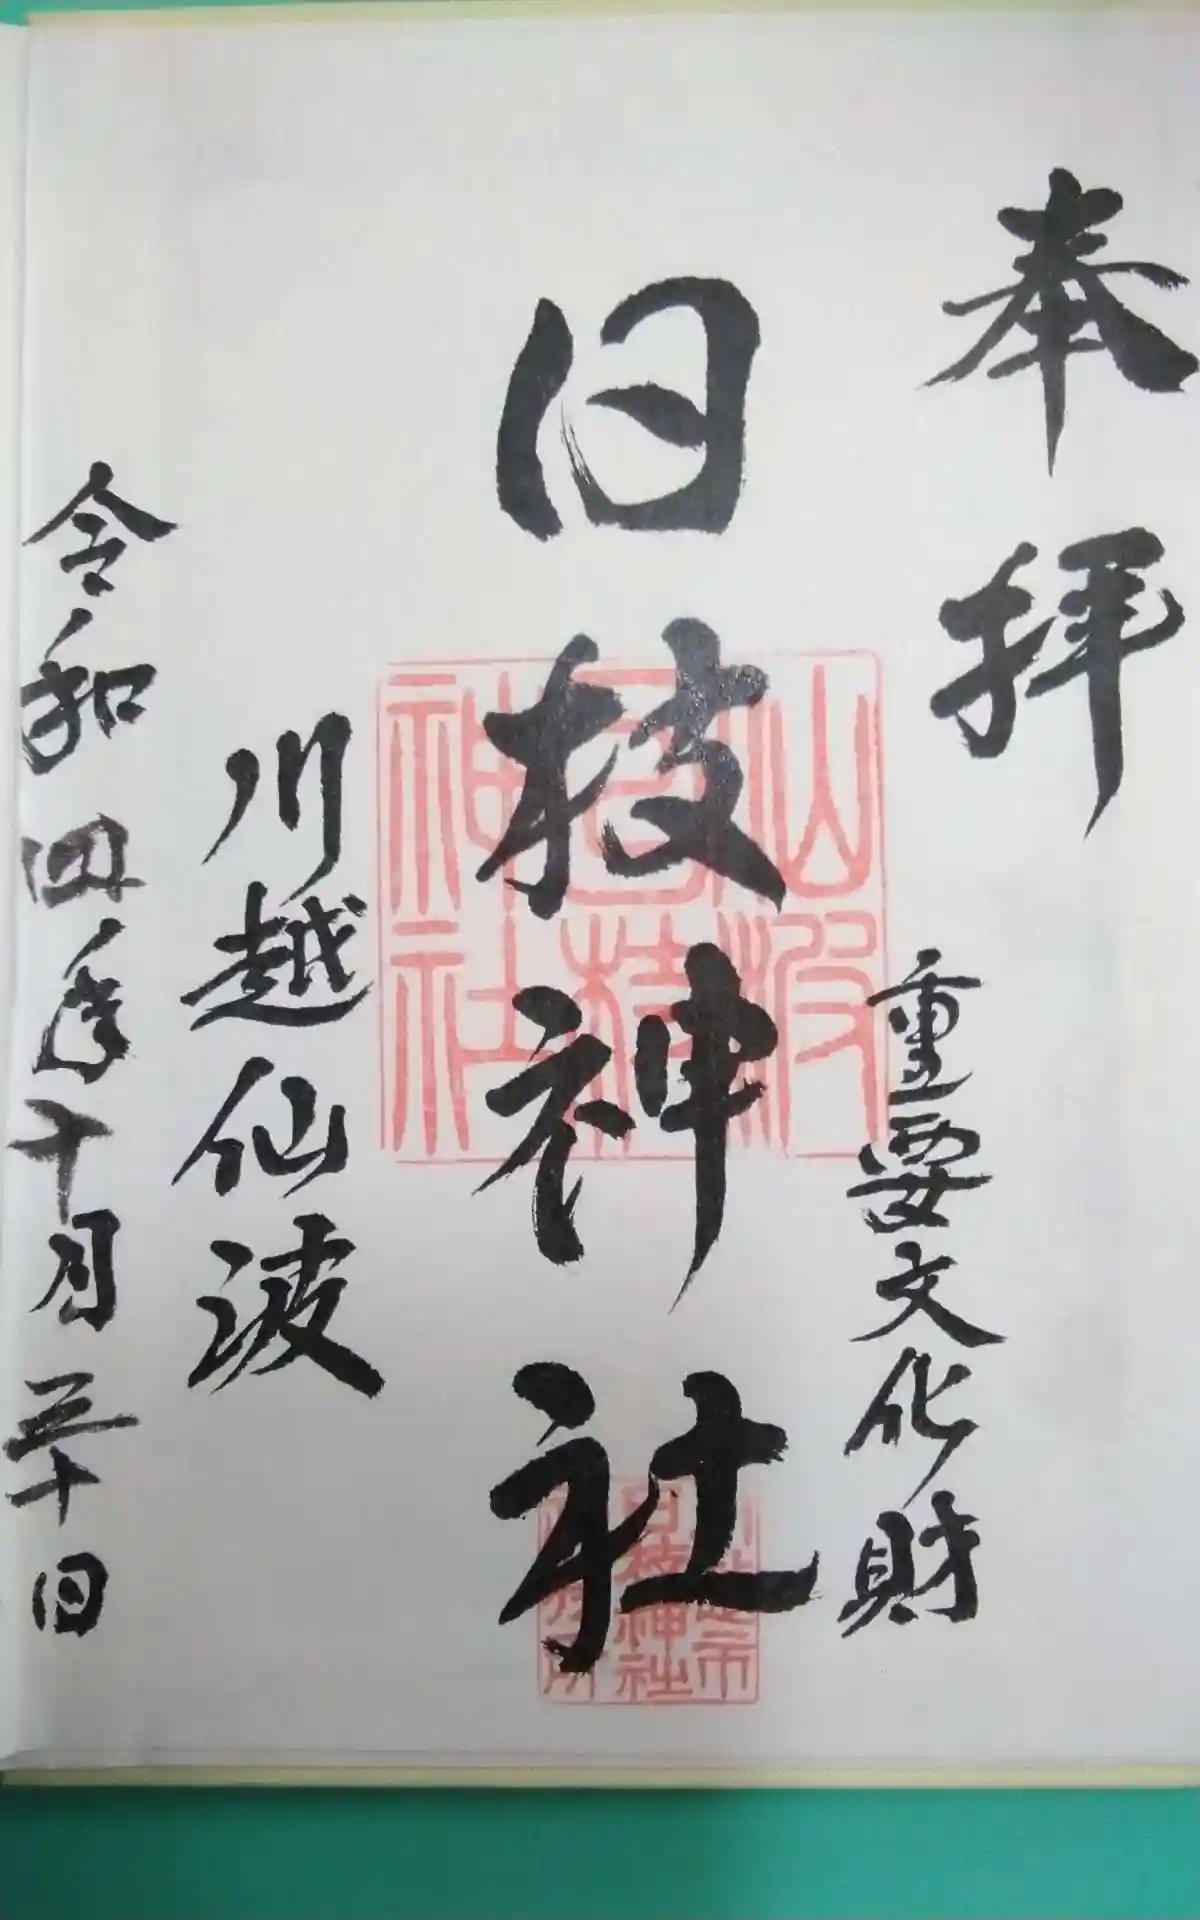 奉拝
重要文化財
日枝神社
川越仙波
令和四年十月三十日
仙波
日枝
神社
日枝神社